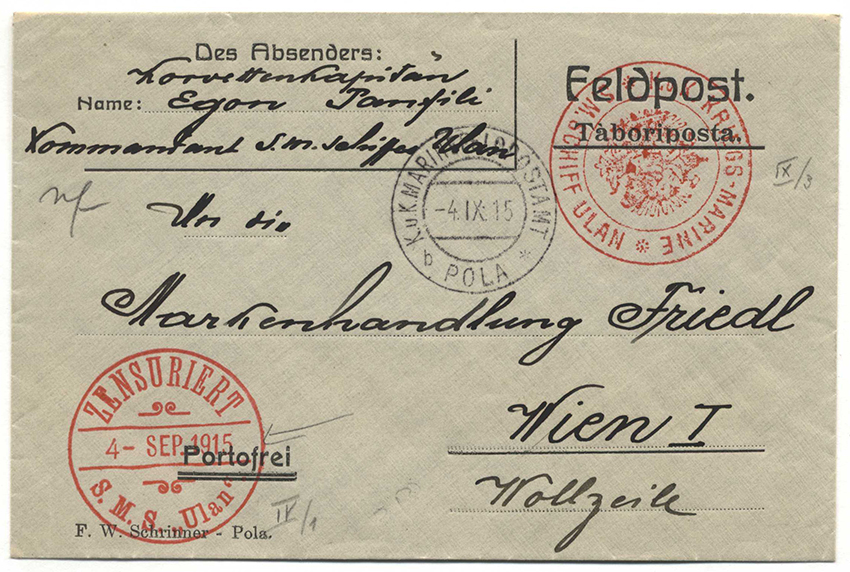 Des Absenders:
Korvettenkapitän
Name: Egon Panfili
Kommandant S.M. Schiffes Ulan
Feldpost.
Tàboriposta.
K.u.K. KRIEGS-MARINE
S.M. SCHIFF ULAN
K.u.K. MARINEFELDPOSTAMT
-4.IX.15
b POLA
IX/3
An die
Markenhandlung Friedl
Wien I
Wollzeile
ZENSURIERT
4- SEP. 1915
S. M. S. „Ulan“
Portofrei
IV/1
F. W. Schrinner - Pola.